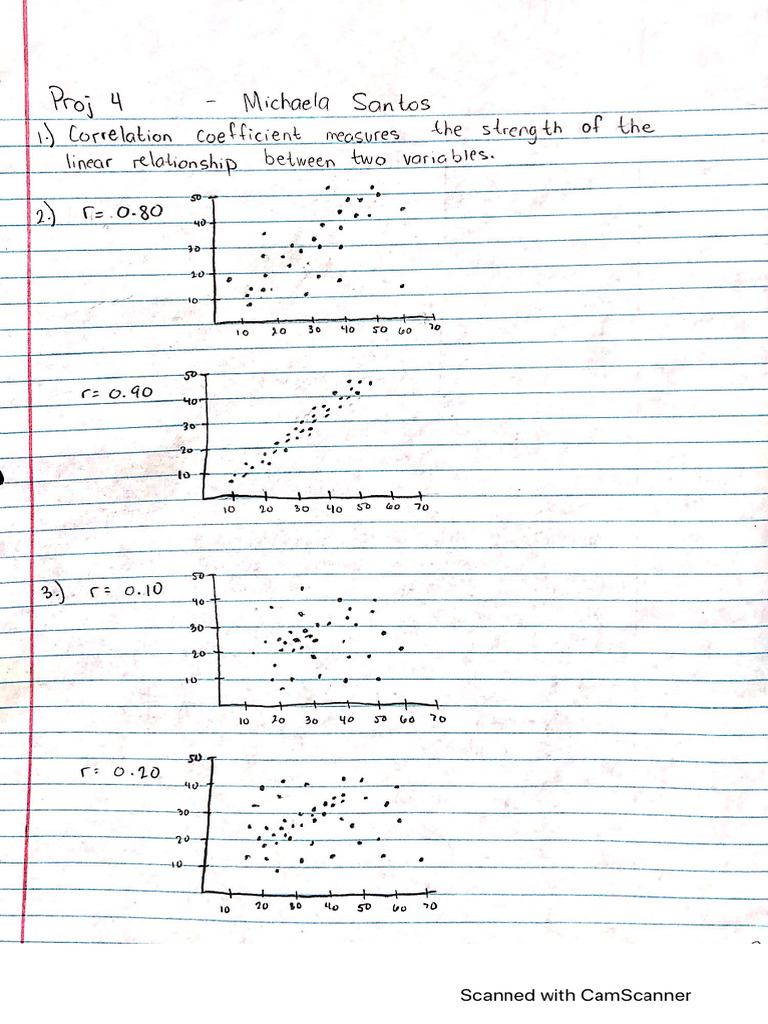 Proj 4 - Michaela Santos
1.) Correlation coefficient measures the strength of the
linear relationship between two variables.
2.) r = 0.80
50
40
30
20
10
10 20 30 40 50 60 70
r = 0.90
50
40
30
20
10
10 20 30 40 50 60 70
3.) r = 0.10
50
40
30
20
10
10 20 30 40 50 60 70
r = 0.20
50
40
30
20
10
10 20 30 40 50 60 70
Scanned with CamScanner